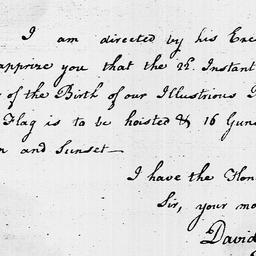 I am directed by his Exc
apprize you that the 22d. Instant
of the Birth of our Illustrious
Flag is to be hoisted & 16 Guns
and Sunset—
I have the Hon
Sir, your mo
David